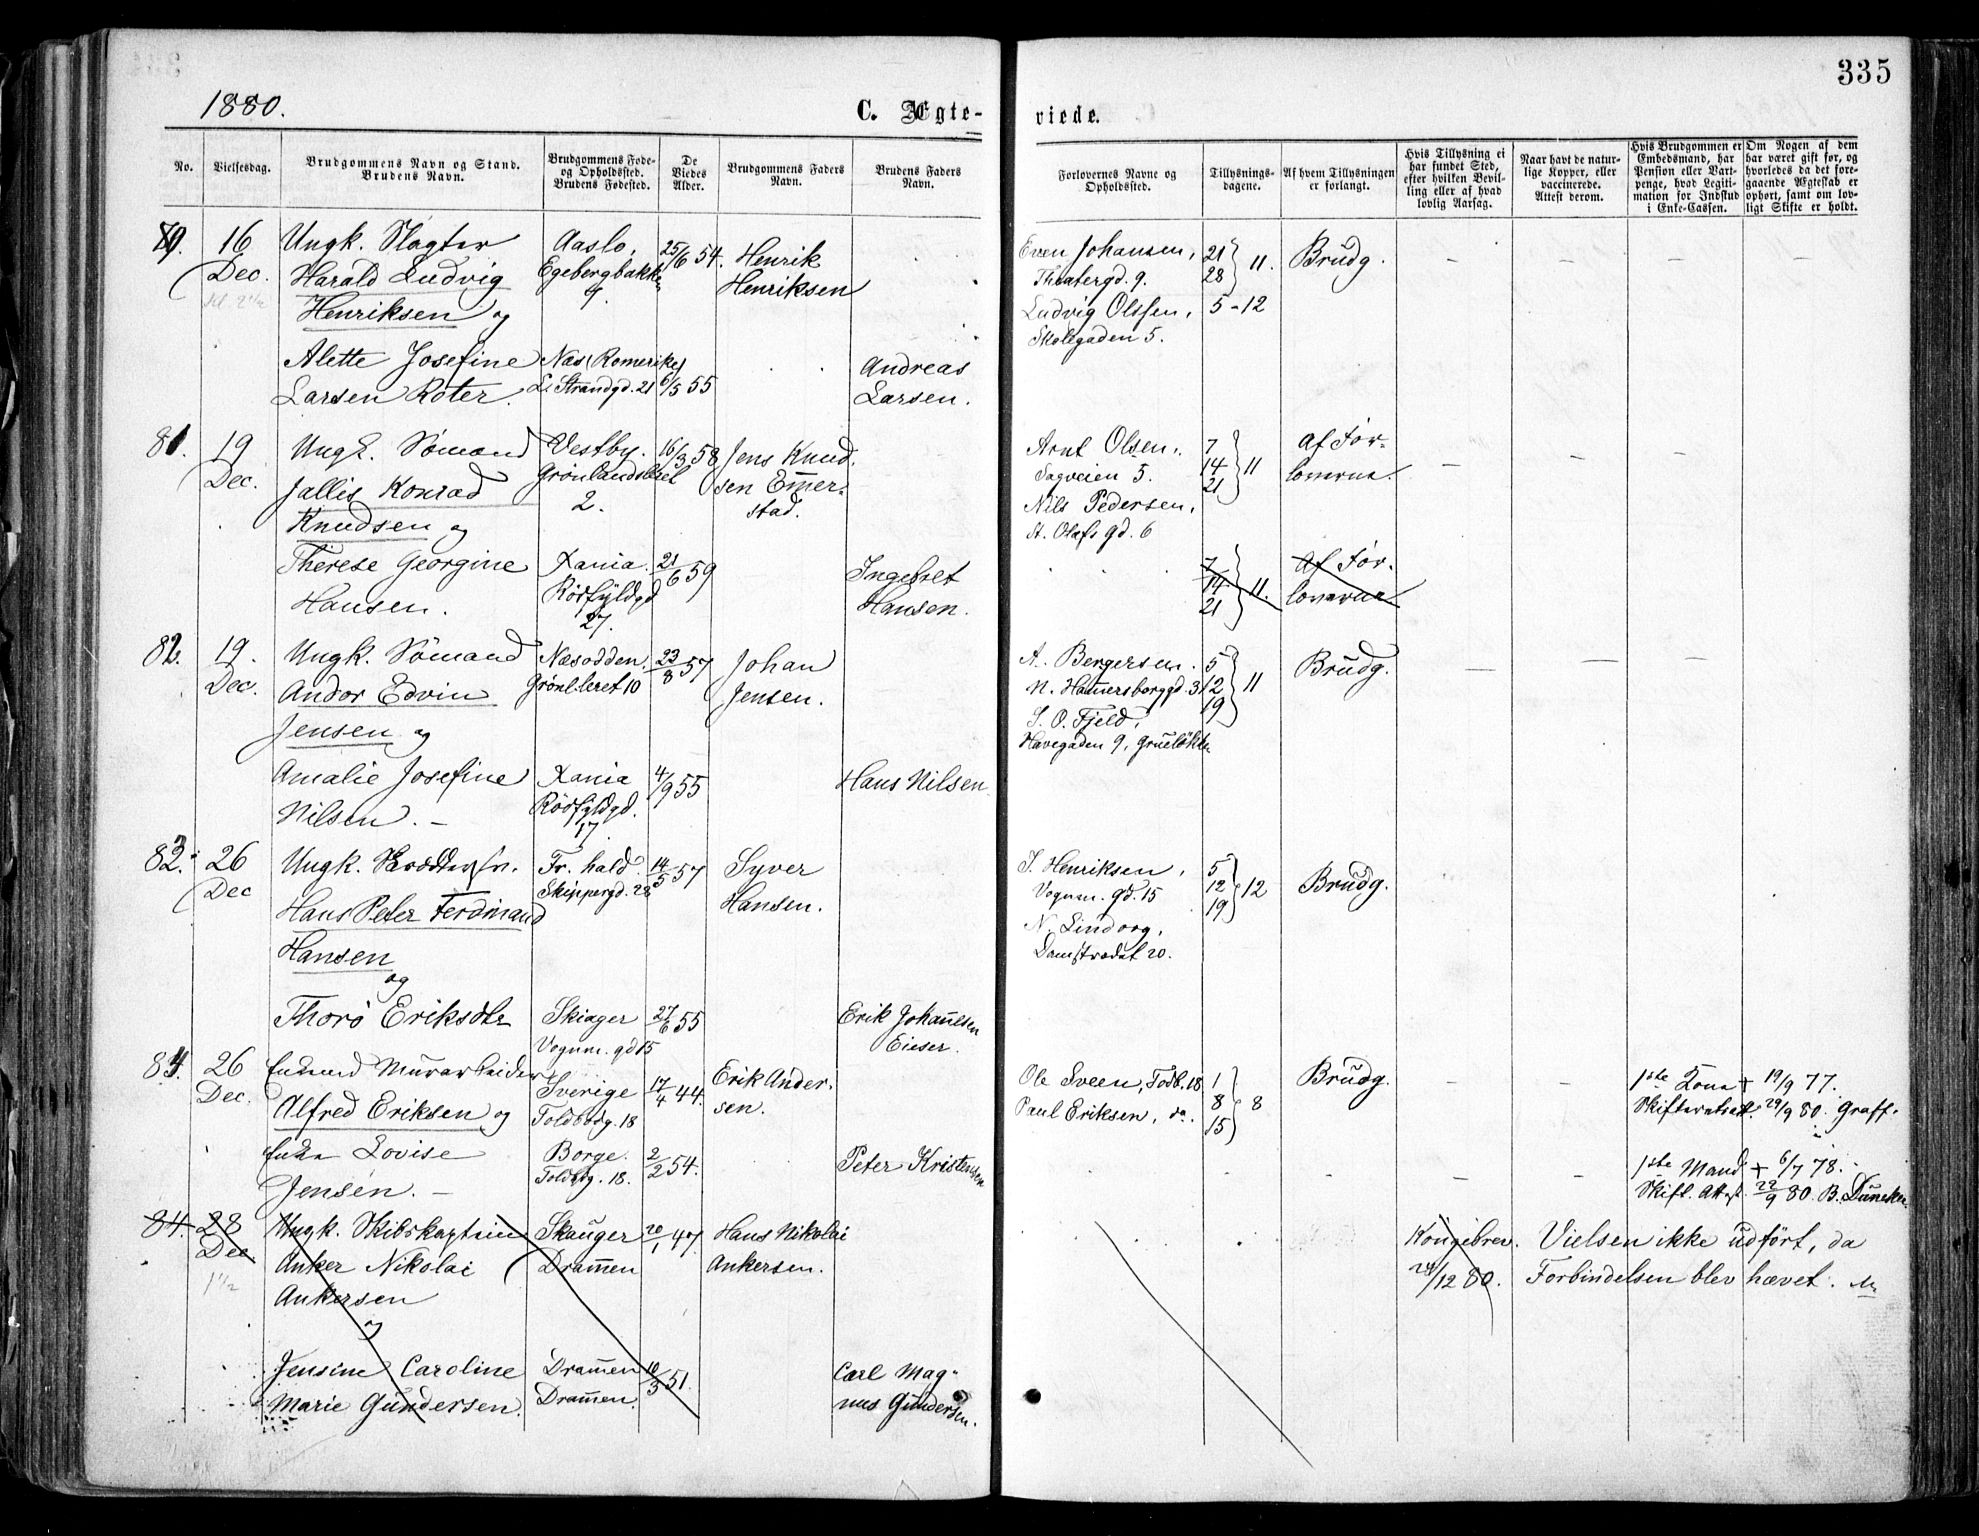 335
1880.
C. Ægte-
viede.
No.
Vielsesdag.
Brudgommens Navn og Stand.
Brudens Navn.
Brudgommens Føde-
og Opholdssted.
Brudens Fødested.
De
Viedes
Alder.
Brudgommens Faders
Navn.
Brudens Faders
Navn.
Forlovernes Navne og
Opholdssted.
Tillysnings-
dagene.
Af hvem Tillysningen
er forlangt.
Hvis Tillysning ei
har fundet Sted,
efter hvilken Bevil-
ling eller af hvad
lovlig Aarsag.
Naar havt de natur-
lige Kopper, eller
vaccinerede.
Attest derom.
Hvis Brudgommen er
Embedsmand, har
Pension eller Vart-
penge, hvad Legiti-
mation for Indskud
i Enke-Cassen.
Om Nogen af dem
har været gift før, og
hvorledes da det fore-
gaaende Ægteskab er
ophørt, samt om lov-
ligt Skifte er holdt.
16
Dec.
Ungk. Slagter
Harald Ludvig
Henriksen og
Aaslo,
Egebergbakken
9.
25/6 54.
Henrik
Henriksen
Even Johansen,
Theatergd. 9.
Ludvig Olssen,
Skolegaden 5.
21
28 } 11.
5-12
Brudg.
Alette Josefine
Larsen Roter.
Næs (Romerike)
L. Strandgd. 21
6/5 55
Andreas
Larsen.
81.
19
Dec.
Ungk. Sømand
Jallis Konrad
Knudsen og
Vestby.
Grønlandsleret
2.
16/3 58
Jens Knud-
sen Emer-
stad.
Arnt Olsen,
Sagveien 5.
Nils Pedersen,
St. Olafs gd. 6
7
14
21 } 11
Af For-
loverne.
Therese Georgine
Hansen.
Xania.
Rødfyldgd
27.
21/6 59
Ingebret
Hansen.
7
14
21 } 11.
Af For-
loverne
82.
19.
Dec.
Ungk. Sømand
Andor Edvin
Jensen og
Næsodden.
Grønl.leret 10
23/8 57
Johan
Jensen.
A. Bergersen.
N. Hamersborggd. 3
S. O. Fjeld,
Havegaden 9, Grueløkken
5
12
19 } 11
Brudg.
Amalie Josefine
Nilsen. -
Xania
Rødfyldgd.
17.
4/9 55
Hans Nilsen
83.
26
Dec
Ungk.
Hans Peter Ferdinand
Hansen
og
Fr. hald.
Skippergd. 28
14/5 57
Syver
Hansen.
S. Henriksen,
Vognm. gd. 15
N. Lindorg,
Damstrædet 20.
5
12
19 } 12
Brudg.
Thorø Eriksdtr
Skiager
Vognm. gd 15
27/6 55
Erik Johannsen
Eieser.
84.
26
Dec.
Enkemd Murarbeider
Alfred Eriksen og
Sverige
Toldbodg. 18
17/4 44.
Erik Ander-
sen.
Ole Sveen, Todb. 18
Paul Eriksen, do.
1
8
15 } 8
Brudg.
1ste Kona + 19/9 77.
Skifteratest. 29/9 80. Graff.
Enke Lovise
Jensen. -
Borge.
Toldbg. 18.
2/2 54.
Peter Kristensen
1ste Mand + 6/7 78.
Skift. Attest. 22/9 80. B. Duncker
84.
28
Dec.
Ungk. Skibskaptein
Anker Nikolai
Ankersen
og
Skauger
Drammen
20/1 47.
Hans Nikolai
Ankersen.
Kongebrev.
24/12 80.
Vielsen ikke udført, da
Forbindelsen blev hævet.
Jensine Caroline
Marie Gundersen.
Drammen
Drammen.
10/3 51.
Carl Mag-
nus Gundersen.